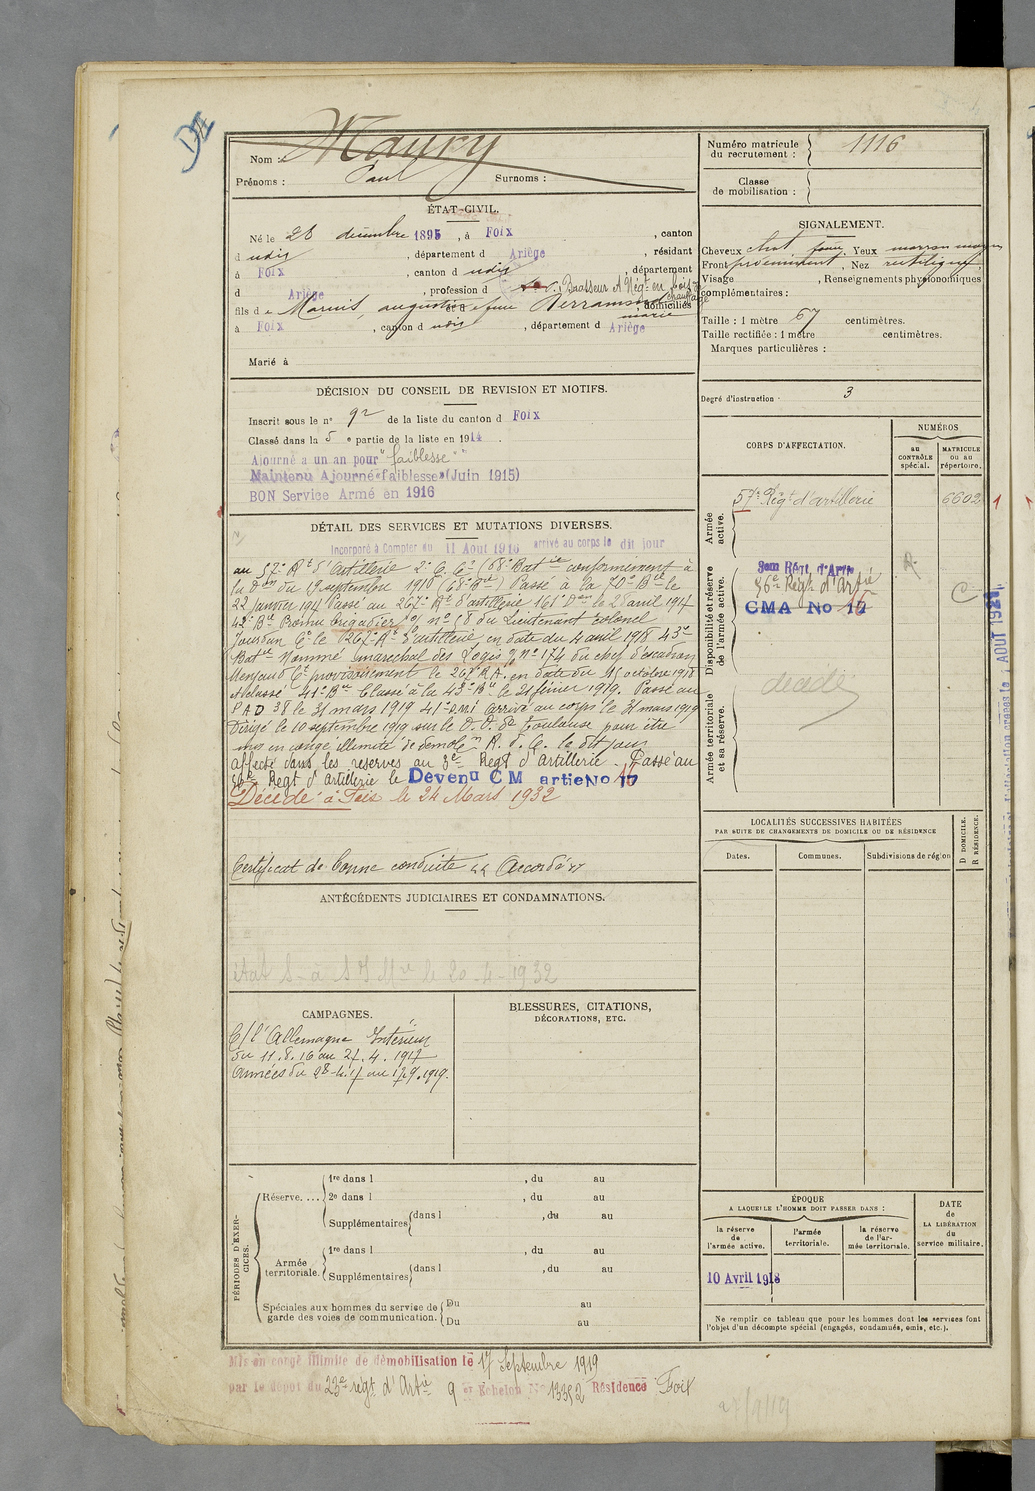 Nom : Maury
Prénoms : Paul Surnoms :
ÉTAT-CIVIL.
Né le 28 décembre 1895, à Foix, canton
d udis, département d Ariège, résidant
à Foix, canton d udis, département
d Ariège, profession d Brasseur et Négt en bois de chauffage
fils d e Marius augustin et de feue domiciliés
marie
à Foix, canton d udis, département d Ariège
Marié à
DÉCISION DU CONSEIL DE REVISION ET MOTIFS.
Inscrit sous le n° 92 de la liste du canton d Foix
Classé dans la 5 e partie de la liste en 1914.
Ajourné a un an pour "faiblesse"
Maintenu Ajourné "faiblesse" (Juin 1915)
BON Service Armé en 1916
DÉTAIL DES SERVICES ET MUTATIONS DIVERSES.
Incorporé à Compter du 11 Aout 1916 arrivé au corps le dit jour
au 57e Rt d'artillerie 2e C. Ct (68e Batie conformément à
la Don du 19 septembre 1916 (68e Bie) Passé à la 70e Bie le
22 janvier 1917 Passé au 267e Rt d'artillerie 161e Don le 28 avril 1917
43e Bie Nommé brigadier n° 58 du Lieutenant colonel
Jourdan Ct le 1267e Rt d'artillerie en date du 4 avril 1918 43e
Batie Nommé marechal des Logis n° 174 du chef d'escadron
Ct provisoirement le 267e RA. en date du 15 octobre 1918
41e Bie Classé à la 43e Bie le 21 février 1919. Passé au
P A D 38 le 31 mars 1919 arrivé au corps le 31 mars 1919
Dirigé le 10 septembre 1919 sur le D. D. de Toulouse pour être
mis en congé illimité de démobn R. d. C. le dit jour
affecté dans les reserves au 3e Regt d'Artillerie. Passé au
56e Regt d'artillerie le Devenu C M artie No 17
Décédé à Foix le 24 Mars 1932
Certificat de bonne conduite "Accordé"
ANTÉCÉDENTS JUDICIAIRES ET CONDAMNATIONS.
CAMPAGNES.
C/ l'Allemagne Intérieur
du 11.8.16 au 27.4.1917
Armées du 28-4-17 au 17.9.1919.
BLESSURES, CITATIONS,
DÉCORATIONS, ETC.
PÉRIODES D'EXERCICES.
Réserve.... 1re dans l , du au
2e dans l , du au
Supplémentaires dans l , du au
Armée territoriale. 1re dans l , du au
Supplémentaires dans l , du au
Spéciales aux hommes du service de garde des voies de communication. Du au
Du au
Numéro matricule du recrutement : 1116
Classe de mobilisation :
SIGNALEMENT.
Cheveux chat foncé Yeux marron moyen
Front proéminent, Nez rectiligne
Visage , Renseignements physionomiques
complémentaires :
Taille : 1 mètre 67 centimètres.
Taille rectifiée : 1 mètre centimètres.
Marques particulières :
Degré d'instruction : 3
CORPS D'AFFECTATION.
NUMÉROS
au CONTRÔLE spécial.
MATRICULE ou au répertoire.
Armée active.
57e Régt d'artillerie 6602
Disponibilité et réserve de l'armée active.
3em Régt d'Artie
56e Regt d'Artie
CMA No 17 16
R. C
Armée territoriale et sa réserve.
décédé
LOCALITÉS SUCCESSIVES HABITÉES
PAR SUITE DE CHANGEMENTS DE DOMICILE OU DE RÉSIDENCE
Dates. Communes. Subdivisions de région
D DOMICILE.
R RÉSIDENCE.
ÉPOQUE
A LAQUELLE L'HOMME DOIT PASSER DANS :
la réserve de l'armée active.
l'armée territoriale.
la réserve de l'armée territoriale.
DATE de LA LIBÉRATION du service militaire.
10 Avril 1918
Ne remplir ce tableau que pour les hommes dont les services font
l'objet d'un décompte spécial (engagés, condamnés, omis, etc.).
Mis en congé illimité de démobilisation le 17 Septembre 1919
par le dépôt du 23e régt d'Artie 9 er Echelon No 13352 Résidence Foix